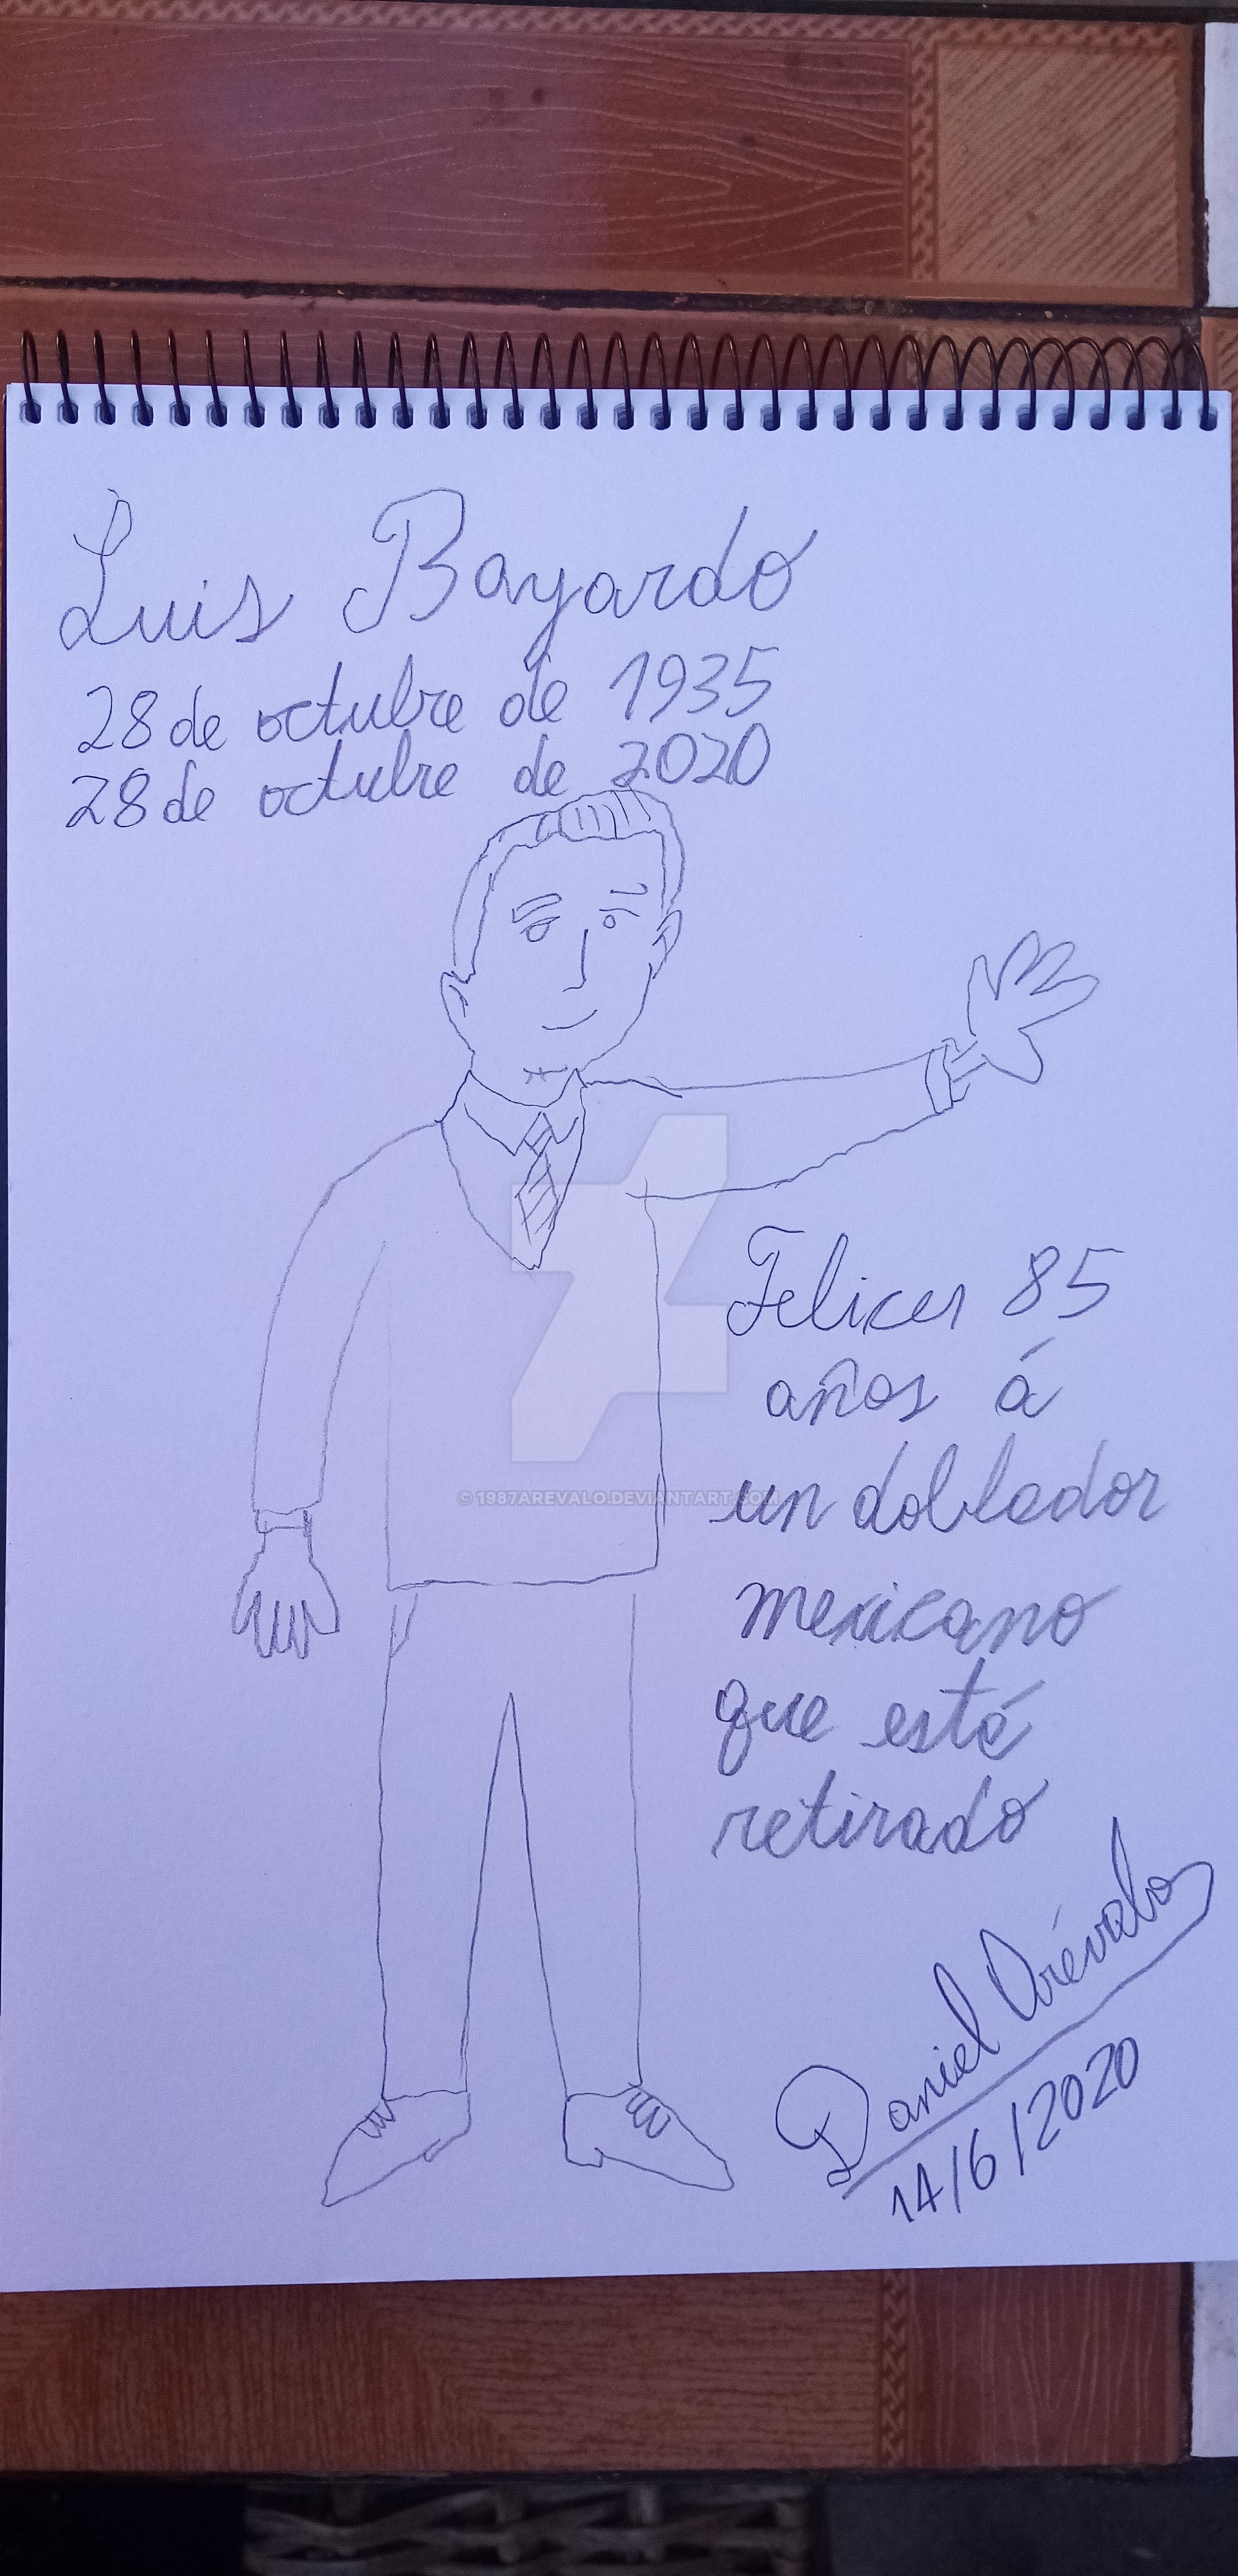 Luis Bayardo
28 de octubre de 1935
28 de octubre de 2020
Felices 85
años á
un doblador
mexicano
que está
retirado
Daniel Arévalo
14/6/2020
© 1987AREVALO.DEVIANTART.COM